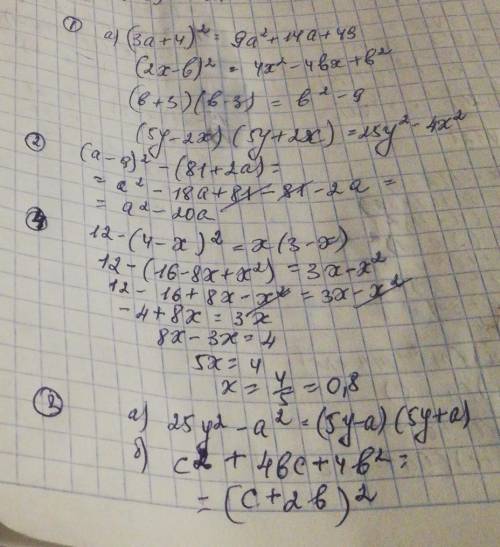 ① а) (3a+4)² = 9a²+14a+49
(2x-b)² = 4x²-4bx+b²
(b+3)(b-3) = b²-9
(5y-2x)(5y+2x)=25y²-4x²
② (a-9)²-(81+2a)=
= a²-18a+81-81-2a =
= a²-20a
④ 12-(4-x)²=x(3-x)
12-(16-8x+x²)=3x-x²
12-16+8x-x²=3x-x²
-4+8x=3x
8x-3x=4
5x=4
x=4/5=0,8
③ а) 25y²-a²=(5y-a)(5y+a)
б) c²+4bc+4b²=
=(c+2b)²